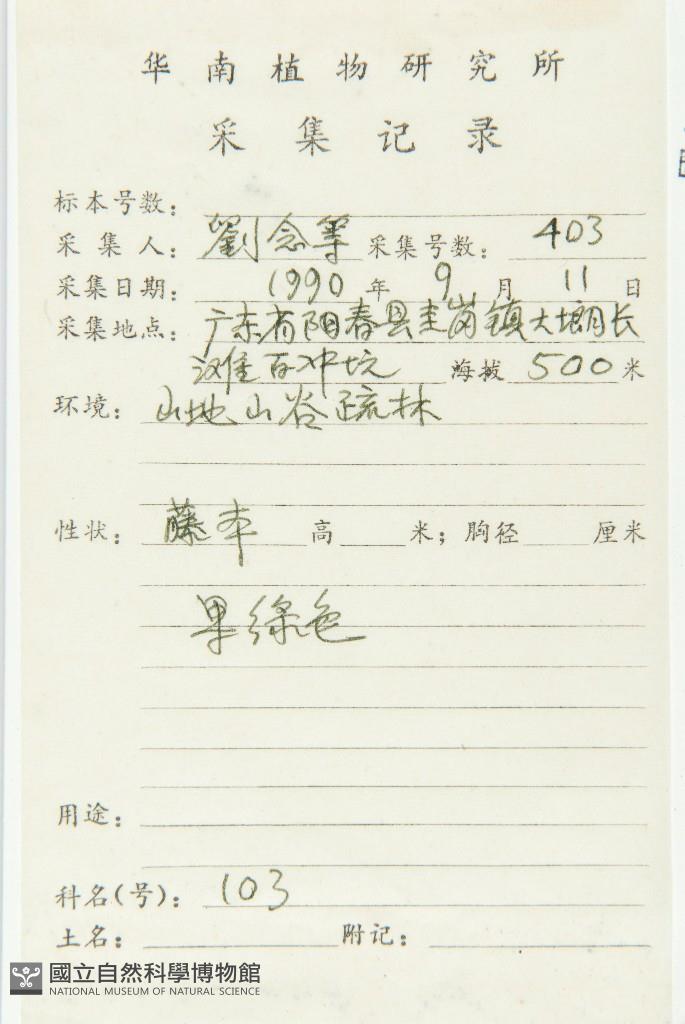 华南植物研究所
采集记录
标本号数:
采集人: 劉念等 采集号数: 403
采集日期: 1990 年 9 月 11 日
采集地点: 广东省阳春县圭岗镇大塱月长
滩百冲坑 海拔 500 米
环境: 山地山谷疏林
性状: 藤本 高 米; 胸径 厘米
果绿色
用途:
科名(号): 103
土名: 附记:
國立自然科學博物館
NATIONAL MUSEUM OF NATURAL SCIENCE